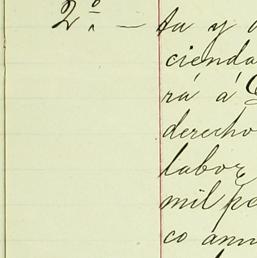 2º. — ta y
cienda
rá á
derecho
labor
mil pe
co ann